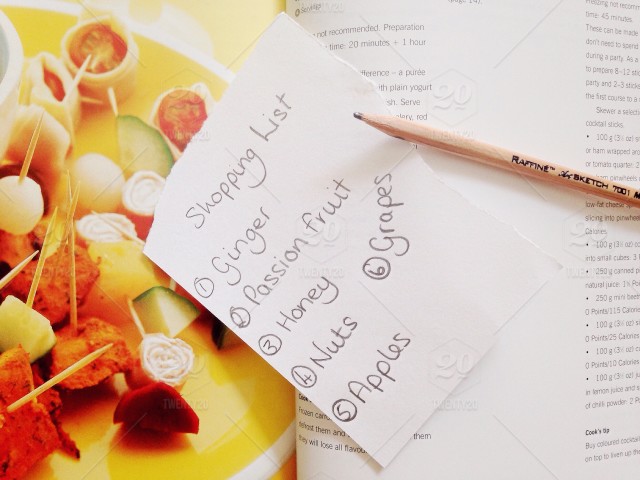 Shopping List
① Ginger
② Passion fruit
③ Honey
④ Nuts
⑤ Apples
⑥ Grapes
RAFFINE™ SKETCH 7001
not recommended. Preparation
time: 20 minutes + 1 hour
fference – a purée
th plain yogurt
sh. Serve
ery, red
Frozen
them
they will lose all flavou
time: 45 minutes.
These can be made
don't need to spend
during a party. As a
to prepare 8–12 stic
party and 2–3 sticks
the first course to a
Skewer a selec
cocktail sticks.
• 100 g (3½ oz)
or ham wrapped aro
or tomato quarter: 2
low-fat cheese
slicing into pinwheel
Calories.
• 100 g (3½ oz)
into small cubes: 3
• 250 g canned
natural juice: 1½ Poin
• 250 g mini beet
0 Points/115 Calories
• 100 g (3½ oz)
0 Points/25 Calories
• 100 g (3½ oz)
0 Points/10 Calories
• 100 g (3½ oz) ju
in lemon juice and
of chilli powder: 2 Po
Cook's tip
Buy coloured cocktail
on top to liven up the
TWENTY20